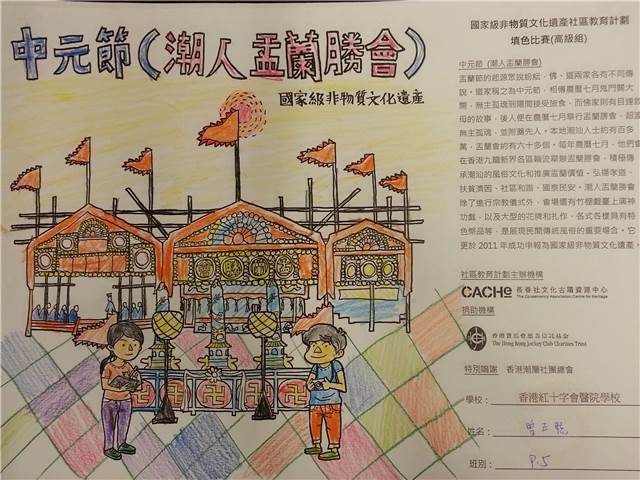 中元節(潮人盂蘭勝會)
國家級非物質文化遺產
國家級非物質文化遺產社區教育計劃
填色比賽(高級組)
中元節 (潮人盂蘭勝會)
盂蘭節的起源眾說紛紜，佛、道兩家各有不同傳
說。道家稱之為中元節，相傳農曆七月鬼門關大
開，無主孤魂到陽間接受施食，而佛家則有目連救
母的故事，後人便在農曆七月舉行盂蘭勝會，超渡
無主孤魂，並附薦先人。本地潮汕人士約有百多
萬，盂蘭會約有六十多個。每年農曆七月，他們會
在香港九龍新界各區輪流舉辦盂蘭勝會，積極傳
承潮汕的風俗文化和推廣盂蘭價值，弘揚孝道、
扶貧濟困、社區和諧、國泰民安。潮人盂蘭勝會
除了進行宗教儀式外，會場還有竹棚戲臺上演神
功戲，以及大型的花牌和扎作，各式各樣具有特
色祭品等，是展現民間傳統風俗的重要場合。它
更於2011年成功申報為國家級非物質文化遺產。
社區教育計劃主辦機構
CACHe 長春社文化古蹟資源中心
The Conservancy Association Centre for Heritage
捐助機構
香港賽馬會慈善信託基金
The Hong Kong Jockey Club Charities Trust
特別鳴謝 香港潮屬社團總會
學校： 香港紅十字會醫院學校
姓名：
班別： P.5